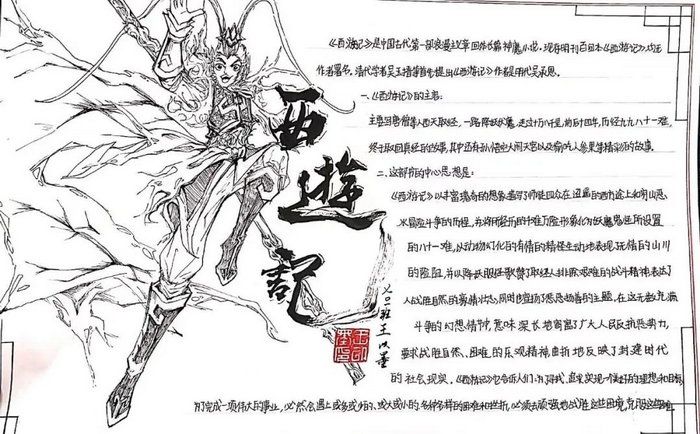 西遊記
《西游记》是中国古代第一部浪漫主义章回体长篇神魔小说。现存明刊百回本《西游记》均无
作者署名。清代学者吴玉搢等首先提出《西游记》作者是明代吴承恩。
一、《西游记》的主要:
主要写唐僧等人西天取经，一路降妖伏魔，走过十万八千里，前后十四年，历经九九八十一难，
终于取回真经的故事，其中还有孙悟空大闹天宫以及偷吃人参果等精彩的故事。
二、这部书的中心思想是:
《西游记》以丰富瑰奇的想象描写了师徒四众在迢遥的西方途上和穷山恶
水冒险斗争的历程，并将所经历的千难万险形象化为妖魔鬼怪所设置
的八十一难，以动物幻化的有情的精怪生动地表现了无情的山川
的险阻，并以降妖服怪歌赞了取经人排除艰难的战斗精神，表达了
人战胜自然的豪情壮志，同时也宣扬了思想的主题，在这无数充满
斗争的幻想情节，意味深长地寓寓了广大人民反抗恶势力，
要求战胜自然、困难的乐观精神，曲折地反映了封建时代
的社会现实。《西游记》也告诉人们:寻找、追求、实现一个美好的理想和目标，
为了完成一项伟大的事业，必然会遇上或多或少的、或大或小的、各种各样的困难和挫折，必须去顽强地战胜这些困难，克服这些
七〇二班 王以墨